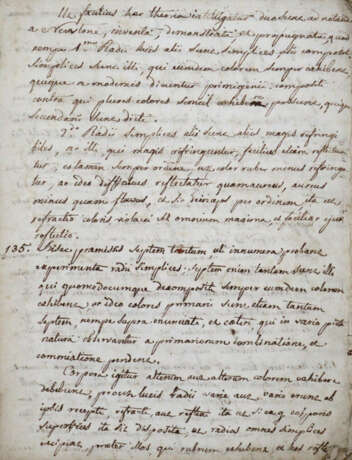 Ut facilius haec theoria intelligatur duo sunt notanda
a Newtone inventa, demonstrata et propugnata quod
nempe 1.mo Radii lucis alii sunt simplices alii compositi
simplices sunt illi, qui eumdem colorem semper exhibent,
quique a modernis dicuntur primigenii; compositi
contra qui plures colores simul exhibent, quique
secundarii sunt dicti.
2.o Radii simplices alii sunt aliis magis refringi
biles, et illi, qui magis refringuntur, facilius etiam reflectun
tur; et tamen semper ordine, ut color ruber minus refringa
tur, ac ideo difficilius reflectatur quam aureus, aureus
minus quam flavus, et sic deinceps per ordinem ita ut
refractio coloris violacei sit omnium maxima, et facilior ejus
reflectio.
135. Hisce praemissis septem tantum ut innumera probant
experimenta radii simplices; septem enim tantum sunt illi
qui quomodocumque decompositi semper eumdem colorem
exhibent, et ideo colores primarii sunt etiam tantum
septem, nempe supra enumerati, et caeteri, qui in varia
natura observantur a primariorum combinatione, et
commixtione pendent.
Corpora igitur alterum aut alterum colorem exhibere
debebunt, prout lucis radii varii
ipsis recepti, refracti, aut reflexi ita ut si corporis
superficies ita sit disposita, ut radios omnes simplices
recipiat praeter illos qui rubrum exhibent, et hos